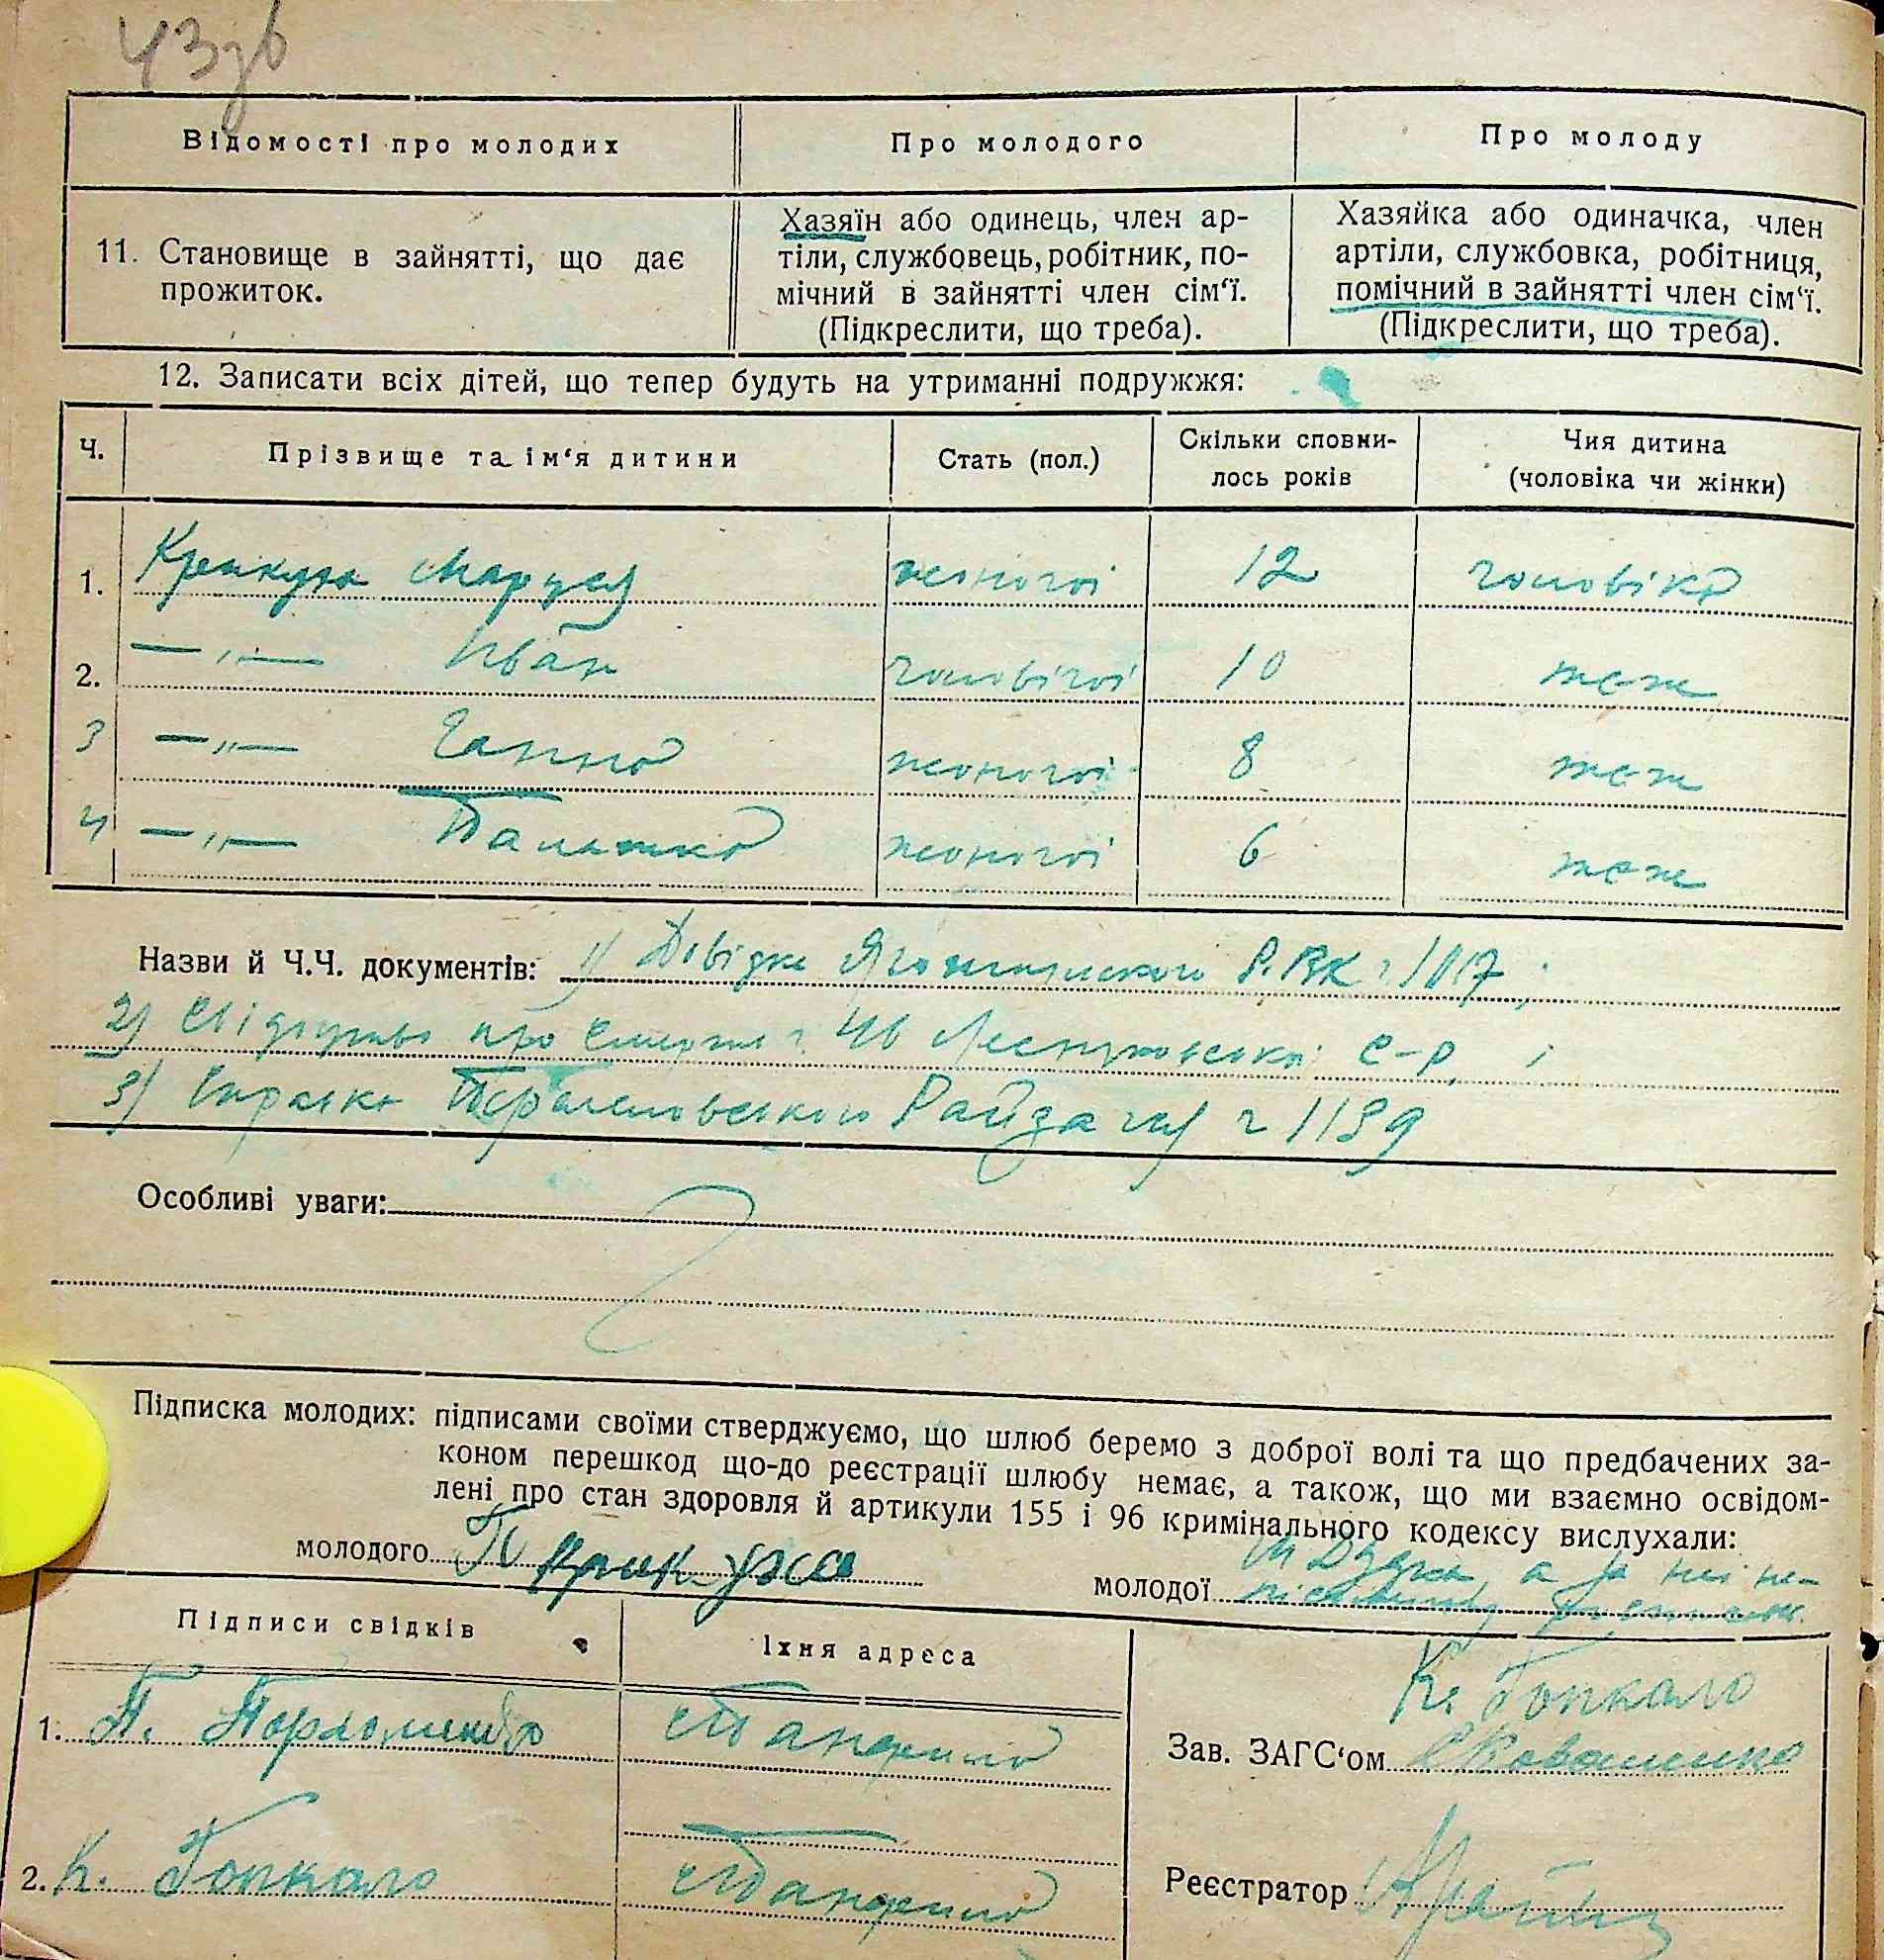 43зв
Відомості про молодих
Про молодого
Про молоду
11. Становище в зайнятті, що дає
прожиток.
Хазяїн або одинець, член ар-
тіли, службовець, робітник, по-
мічний в зайнятті член сім‘ї.
(Підкреслити, що треба).
Хазяйка або одиначка, член
артіли, службовка, робітниця,
помічний в зайнятті член сім‘ї.
(Підкреслити, що треба).
12. Записати всіх дітей, що тепер будуть на утриманні подружжя:
Ч.
Прізвище та ім‘я дитини
Стать (пол.)
Скільки сповни-
лось років
Чия дитина
(чоловіка чи жінки)
1. Маруся жіночої 12 чоловіка
2. —„— Іван чоловічої 10 теж
3 —„— Ганна жіночої 8 теж
4 —„— жіночої 6 теж
Назви й Ч.Ч. документів: 1) Довідка Р.ВК ч 1017;
2) Свідоцтво про смерть ч. 46 с-р. ;
3) Справка ч 1139
Особливі уваги:
Підписка молодих: підписами своїми стверджуємо, що шлюб беремо з доброї волі та що предбачених за-
коном перешкод що-до реєстрації шлюбу немає, а також, що ми взаємно освідом-
лені про стан здоровля й артикули 155 і 96 кримінального кодексу вислухали:
молодого
молодої а за неї не-
Підписи свідків
Їхня адреса
К. Гопкало
1. П. Пархоменко
Зав. ЗАГС‘ом Коваленко
2. К. Гопкало
Реєстратор